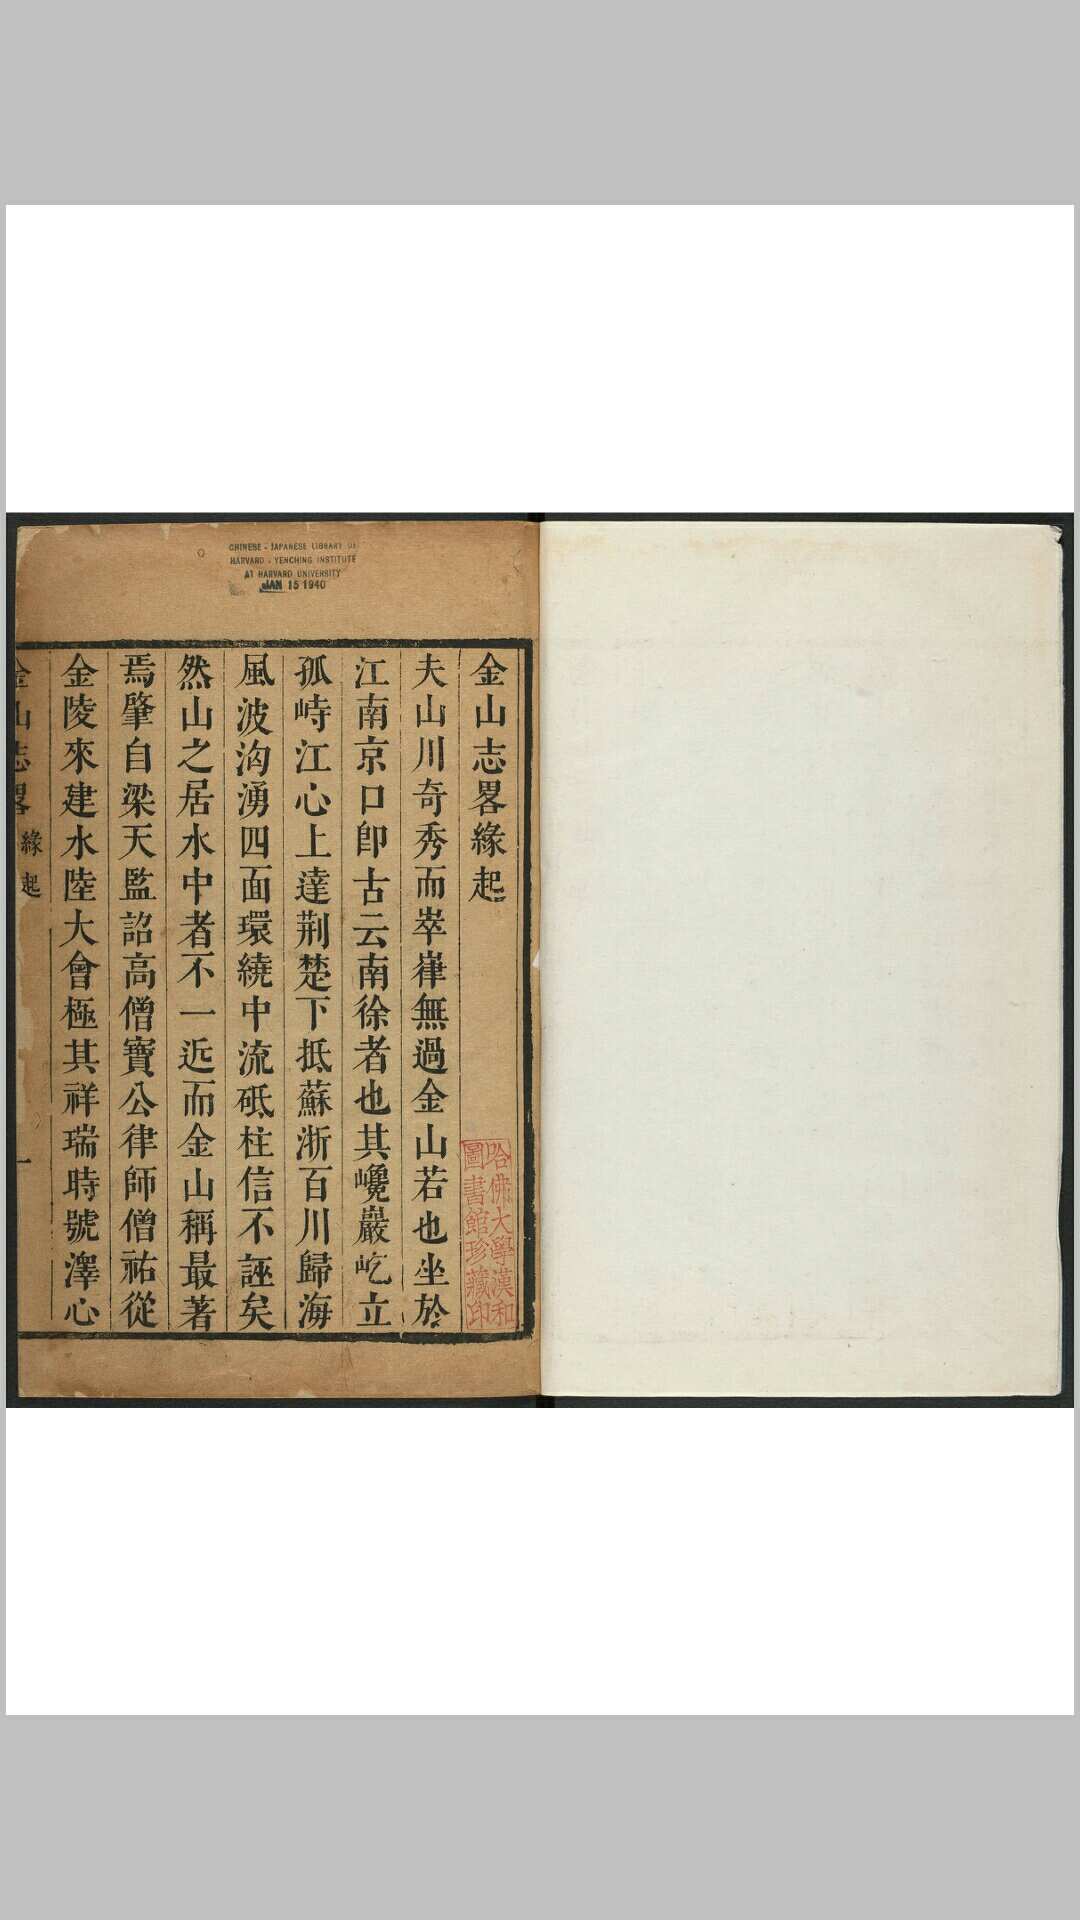 CHINESE - JAPANESE LIBRARY OF
HARVARD - YENCHING INSTITUTE
AT HARVARD UNIVERSITY
JAN 15 1940
金山志畧緣起
夫山川奇秀而崒嵂無過金山若也坐於
江南京口卽古云南徐者也其巉巖屹立
孤峙江心上達荆楚下抵蘇浙百川歸海
風波洶湧四面環繞中流砥柱信不誣矣
然山之居水中者不一近而金山稱最著
焉肇自梁天監詔高僧寶公律師僧祐從
金陵來建水陸大會極其祥瑞時號澤心
金山志畧 緣起 一
哈佛大學漢和
圖書館珍藏印